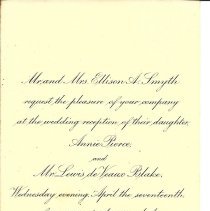 Mr. and Mrs. Ellison A. Smyth
request the pleasure of your company
at the wedding reception of their daughter,
Annie Pierce,
and
Mr. Lewis de Veaux Blake,
Wednesday evening, April the seventeenth,